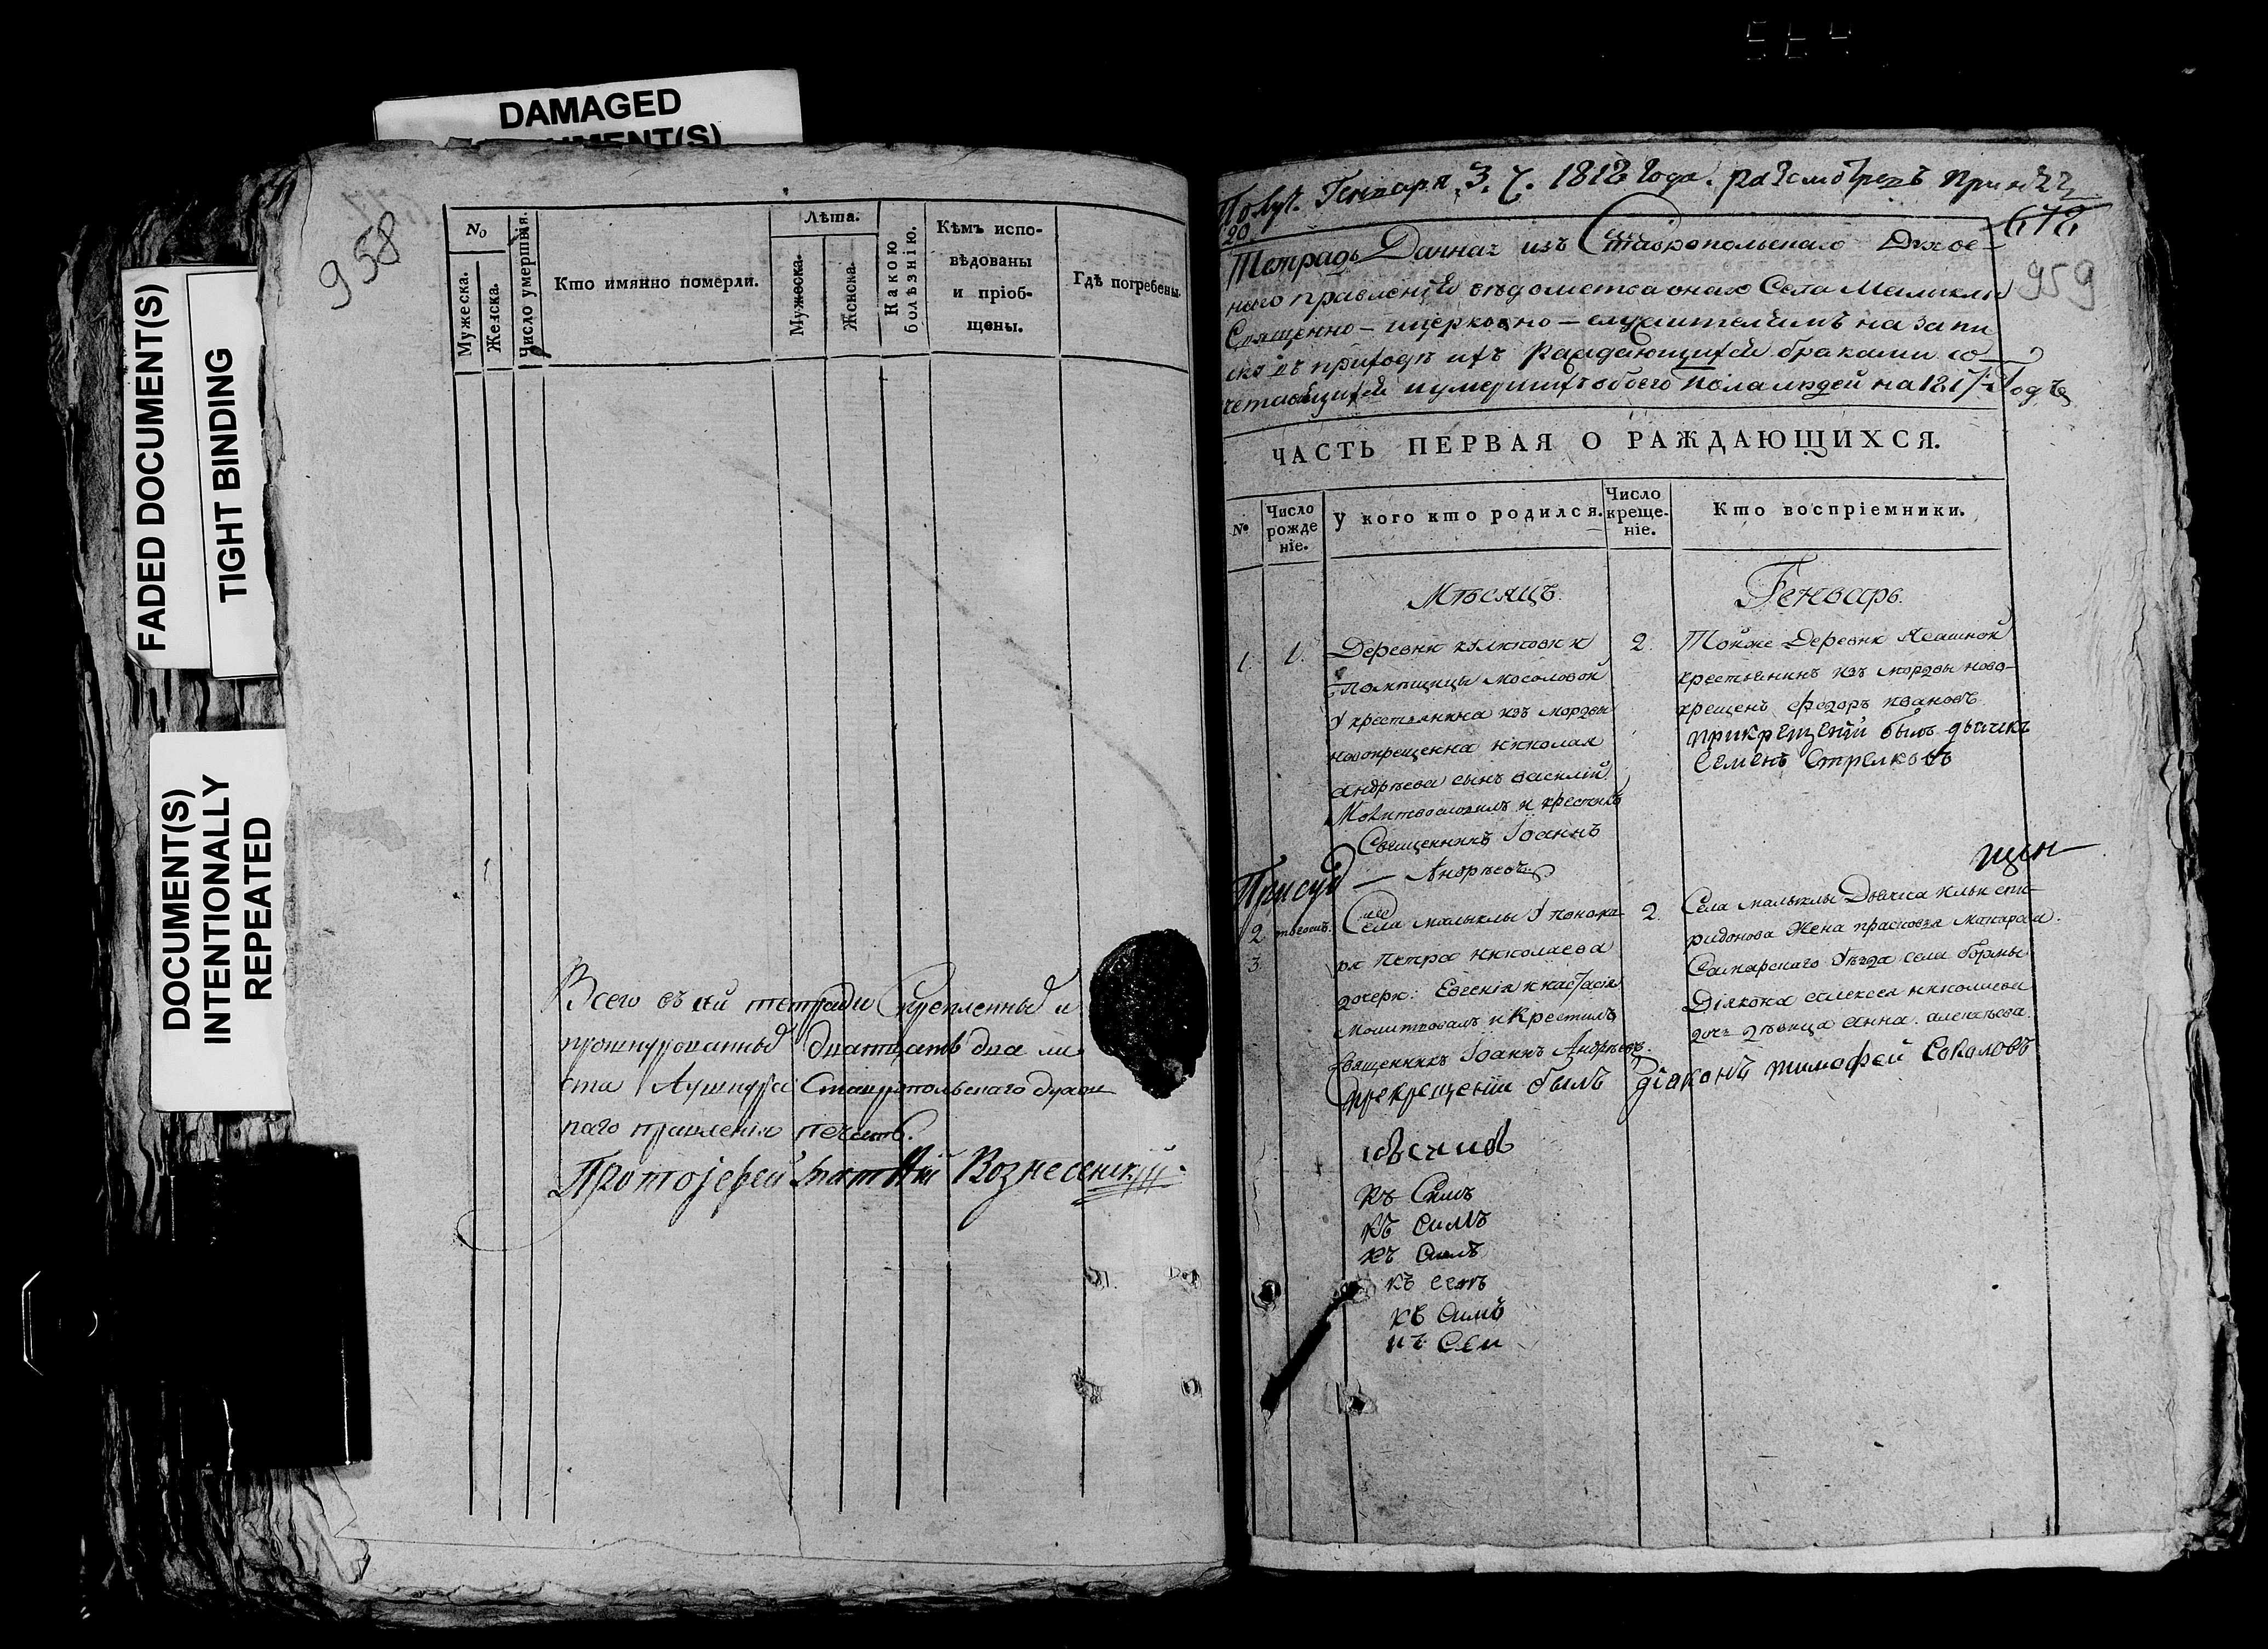 564
DAMAGED
FADED DOCUMENT(S)
TIGHT BINDING
DOCUMENT(S)
INTENTIONALLY
REPEATED
958
No
Мужеска.
Женска.
Число умершихъ.
Кто имянно померли.
Лѣта.
Мужеска.
Женска.
Какою
болѣзнію.
Кѣмъ испо-
вѣдованы
и пріоб-
щены.
Гдѣ погребены.
Всего въ сей тетради скрепленныхъ и
прошнурованныхъ дватцать два ли
ста Ставропольскаго духов
наго правленія печать.
Протоіерей Вознесенскій
Генваря 3. ч. 1818 года.
20.
678
959
Тетрадь Данная изъ Ставропольскаго Духов
наго правленія вѣдомства онаго Села Малыклы
Священно-церковно-служителямъ на запи
ску въ приходѣ ихъ раждающихся браками со
четавшихся и умершихъ обоего пола людей на 1817 Годъ
ЧАСТЬ ПЕРВАЯ О РАЖДАЮЩИХСЯ.
№
Число
рожде
ніе.
У кого кто родился.
Число
креще-
ніе.
Кто воспріемники.
Мѣсяцъ.
Генварь.
1.
1.
Деревни
Помѣщицы Мосоловой
У крестьянина изъ мордвы
новокрещенна Николая
Андрѣева сынъ Василій
Молитвословилъ и крестилъ
Священникъ Іоаннъ
Андрѣевъ
2.
Тойже Деревни
крестьянинъ изъ мордвы ново-
крещенъ Федоръ Ивановъ
при крещеніи былъ дьячикъ
Семенъ Стрелковъ
Присуд
щи
2
3
тогожъ.
Села Малыклы У понома-
ря Петра Николаева
дочери: Евгенія и Настасія
Молитвовалъ и Крестилъ
Священникъ Іоаннъ Андрѣевъ.
2.
Села Малыклы Дьячка Ильи Спи-
ридонова Жена Прасковья Макарова.
Самарскаго Уѣзда села Бормы
Діякона Алексея Николаева
дочь дѣвица Анна Алексѣева.
При крещеніи былъ діаконъ Тимофей Соколовъ
къ Симъ
къ Симъ
къ Симъ
къ Семъ
къ Симъ
къ Сем